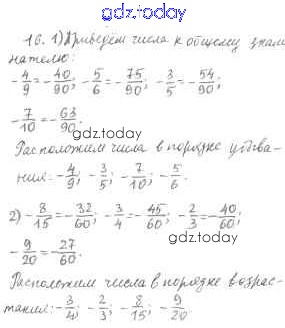 gdz.today
16. 1) Приведём числа к общему знаме-
нателю:
-4/9 = -40/90; -5/6 = -75/90; -3/5 = -54/90;
-7/10 = -63/90.
gdz.today
Расположим числа в порядке убыва-
ния: -4/9; -3/5; -7/10; -5/6.
2) -8/15 = -32/60; -3/4 = -45/60; -2/3 = -40/60;
gdz.today
-9/20 = -27/60.
Расположим числа в порядке возрас-
тания: -3/4; -2/3; -8/15; -9/20.
gdz.today